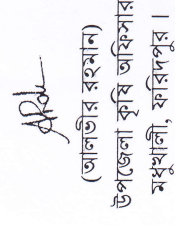 (আলভীর রহমান)
উপজেলা কৃষি অফিসার
মধুখালী, ফরিদপুর।